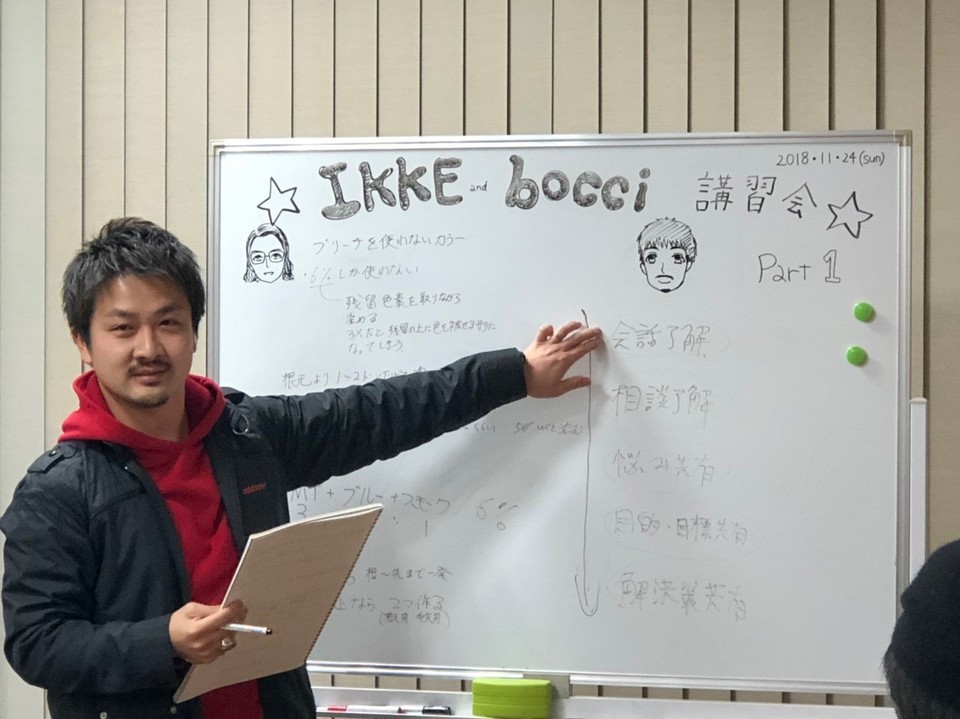 2018・11・24(sun)
IKKE and bocci 講習会
Part 1
ブリーチを使わないカラー
・6%しか使わない
残留色素を取りながら
染める
なってしまう
根元より1〜2トーン
ブルー+スモーク 6%
3 1
根〜先まで一発
なら 2つ作る
会話了解
相談了解
悩み共有
目的・目標共有
解決策共有